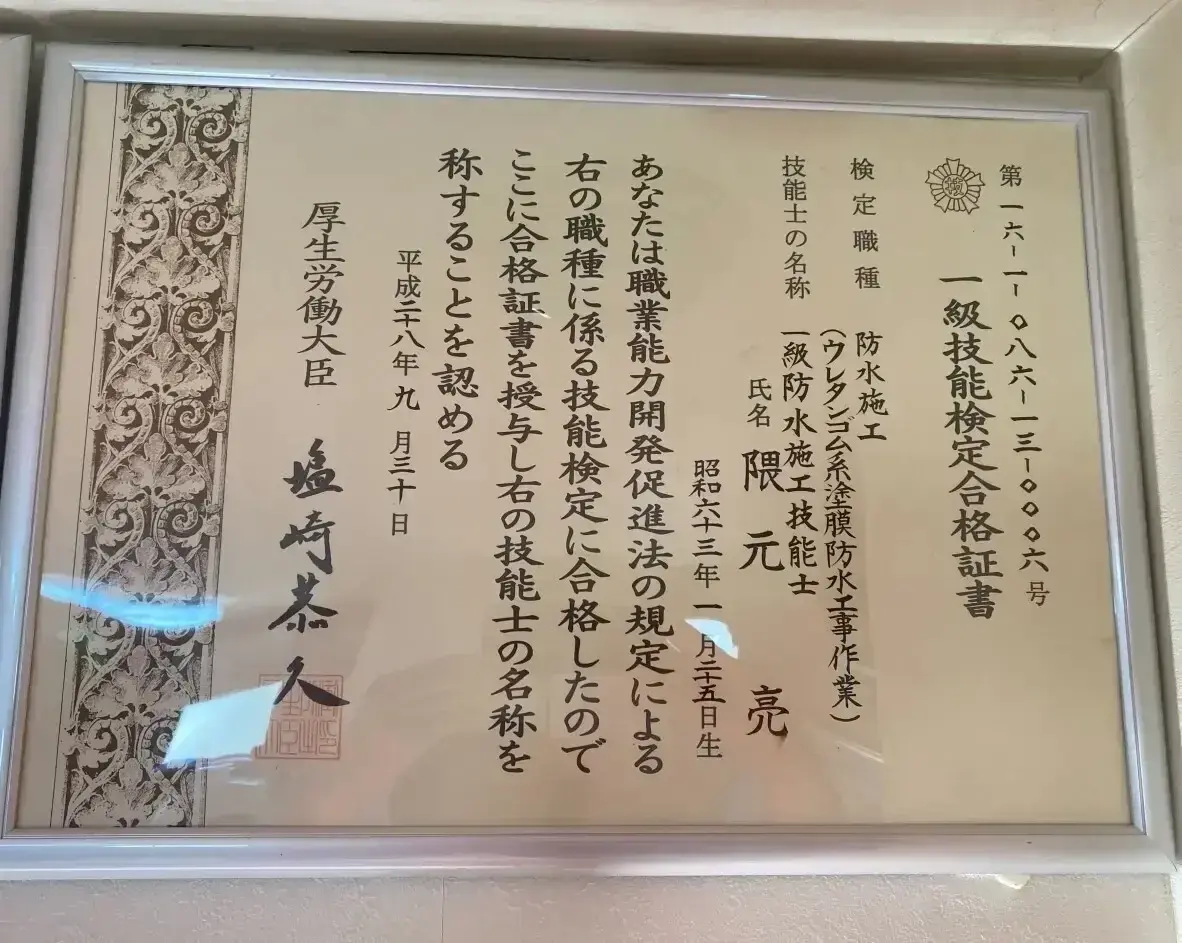 第一六-一-〇八六-一三-〇〇〇六号
一級技能検定合格証書
検定職種
防水施工
(ウレタンゴム系塗膜防水工事作業)
技能士の名称
一級防水施工技能士
氏名 隈元 亮
昭和六十三年一月二十五日生
あなたは職業能力開発促進法の規定による
右の職種に係る技能検定に合格したので
ここに合格証書を授与し右の技能士の名称を
称することを認める
平成二十八年九月三十日
厚生労働大臣 塩崎恭久